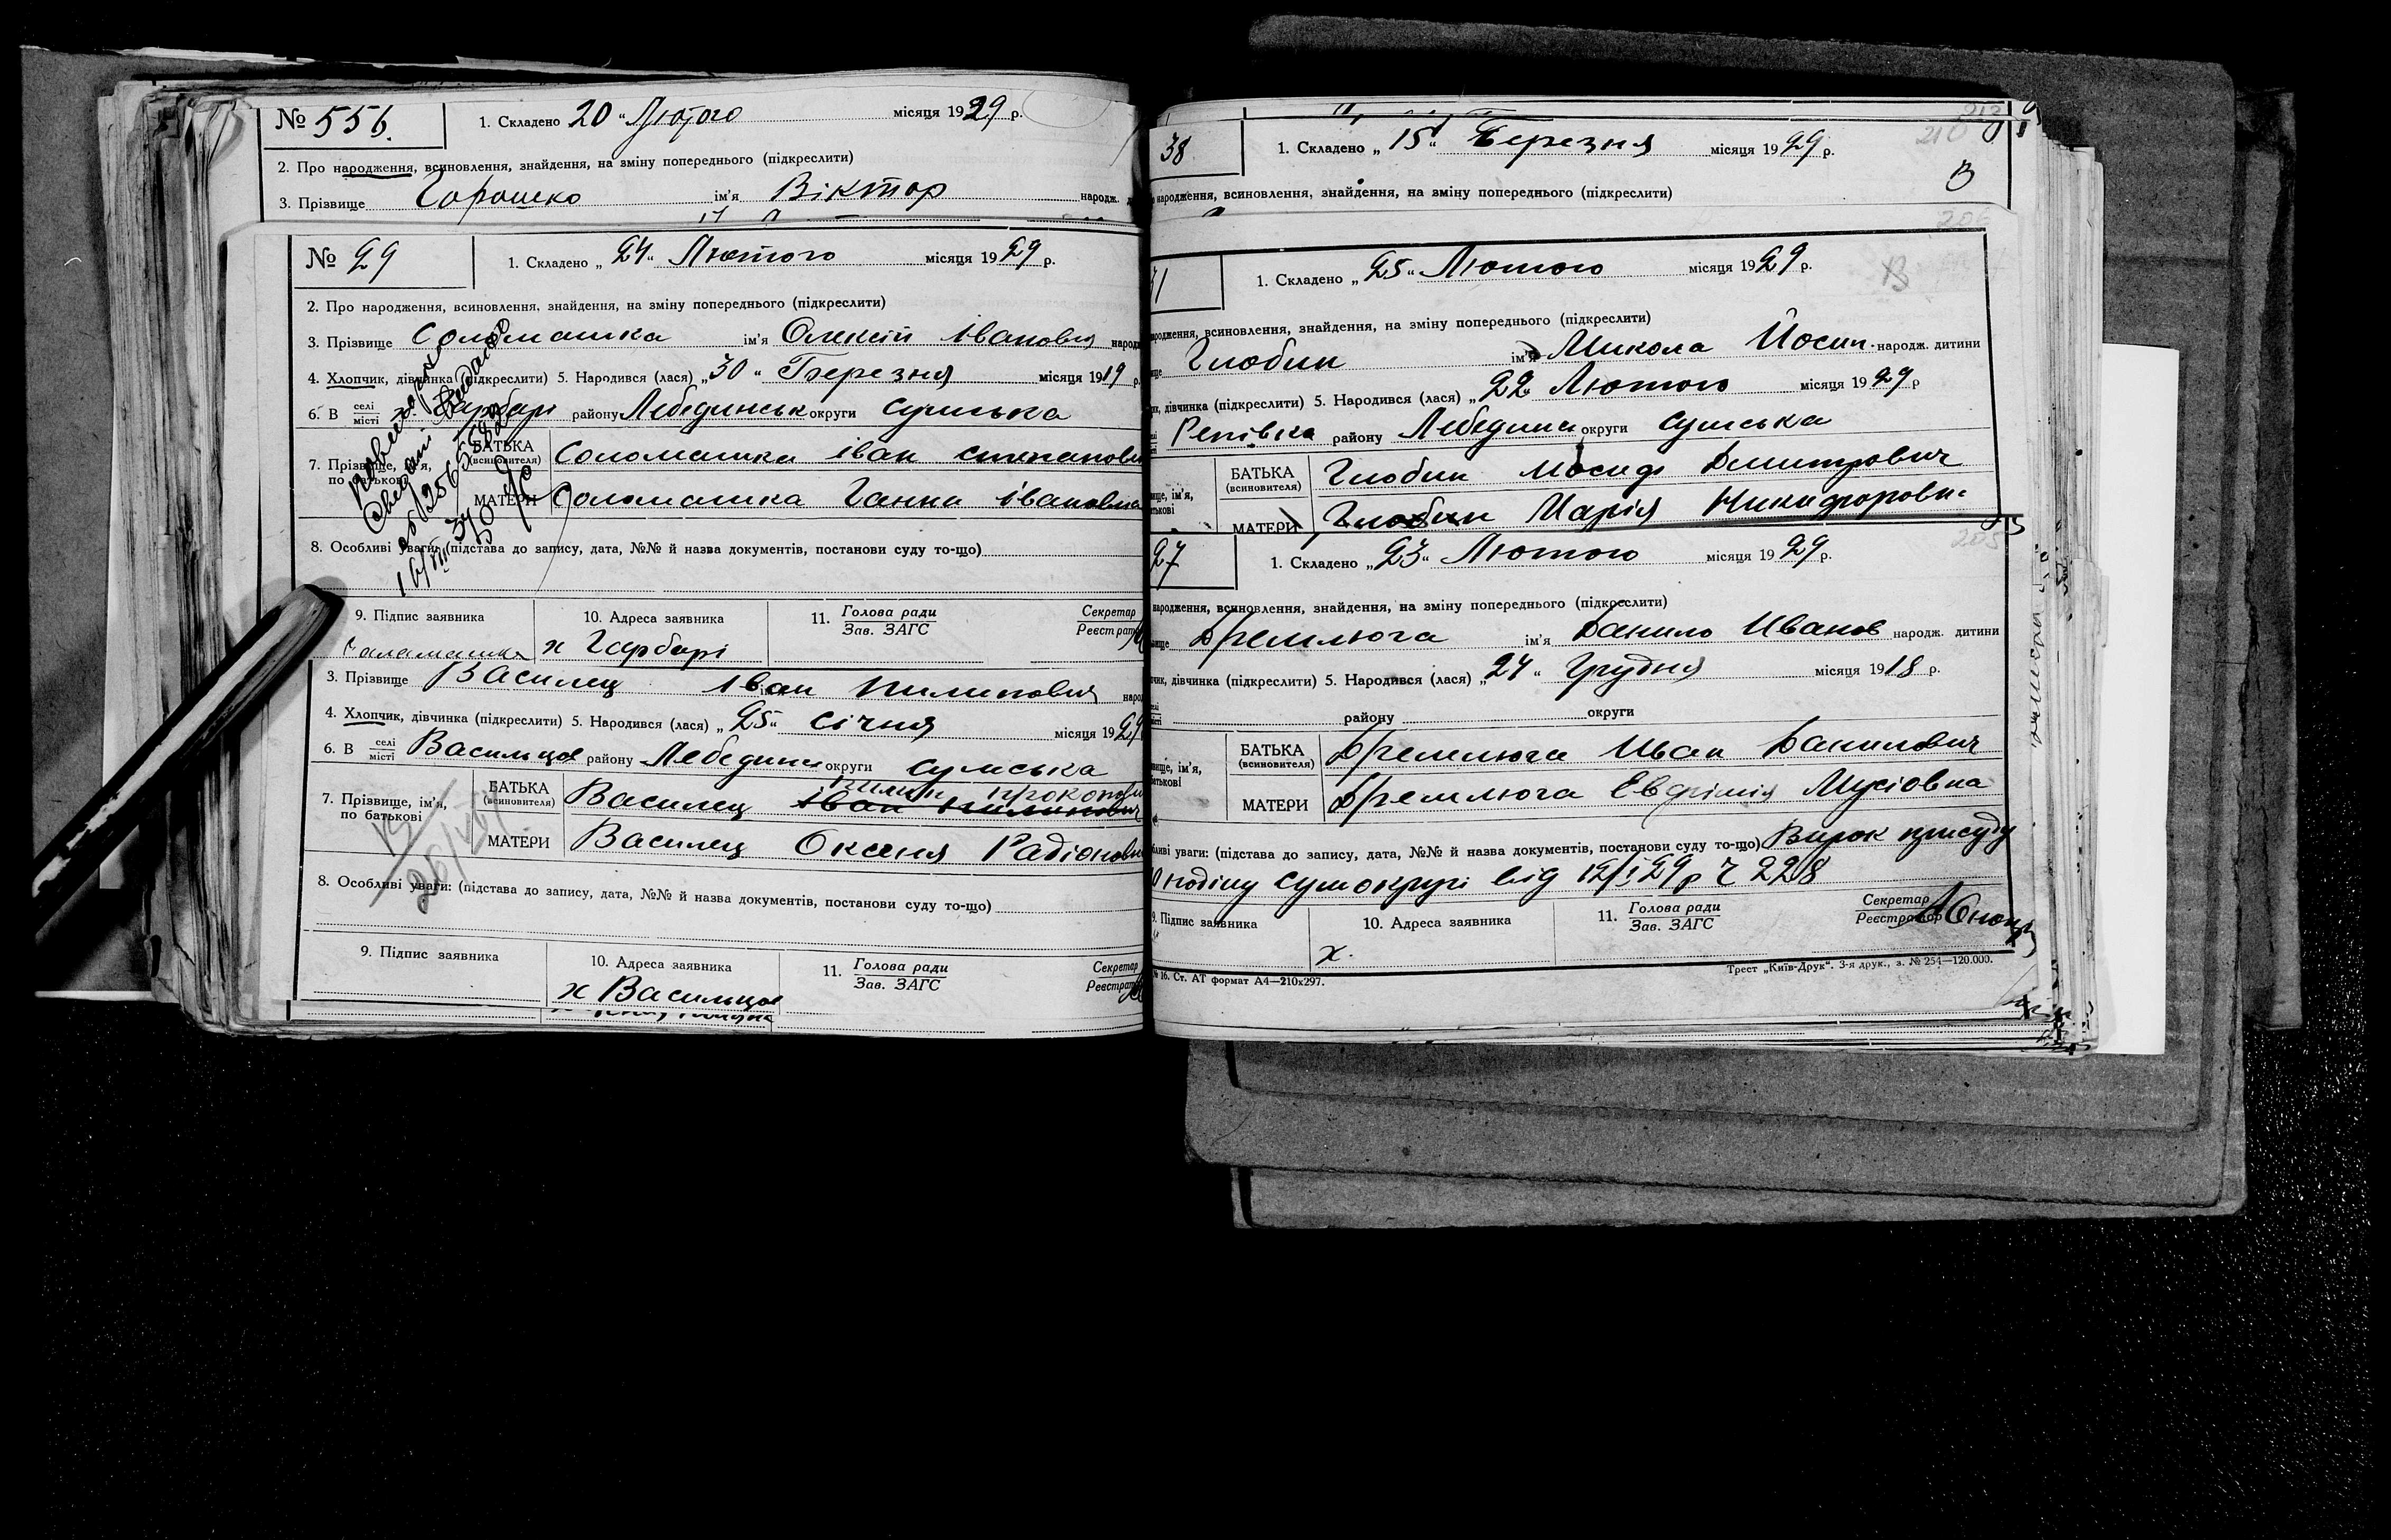 № 556. 1. Складено 20 " Лютого місяця 1929 р.
2. Про народження, всиновлення, знайдення, на зміну попереднього (підкреслити)
3. Прізвище Горошко ім'я Віктор народж.
№ 29 1. Складено „ 24 " Лютого місяця 1929 р.
2. Про народження, всиновлення, знайдення, на зміну попереднього (підкреслити)
3. Прізвище Соломашка ім'я Олексій Іванович
4. Хлопчик, дівчинка (підкреслити) 5. Народився (лася) „ 30 " Березня місяця 1919 р.
6. В селі місті району Лебединськ округи Сумська
7. Прізвище, ім'я, по батькові БАТЬКА (всиновителя) Соломашка Іван Степанови
МАТЕРИ Соломашка Ганна Івановна
8. Особливі уваги: (підстава до запису, дата, №№ й назва документів, постанови суду то-що)
9. Підпис заявника 10. Адреса заявника 11. Голова ради Зав. ЗАГС Секретар Реєстрат
х
3. Прізвище Василец Іван Пилипович
4. Хлопчик, дівчинка (підкреслити) 5. Народився (лася) „ 25 " Січня місяця 1929
6. В селі місті Васильцов району Лебедини округи Сумська
Пилип Прокопови
7. Прізвище, ім'я, по батькові БАТЬКА (всиновителя) Василец Іван Пилипович
МАТЕРИ Василец Оксеня Радіоновн
8. Особливі уваги: (підстава до запису, дата, №№ й назва документів, постанови суду то-що)
9. Підпис заявника 10. Адреса заявника 11. Голова ради Зав. ЗАГС Секретар Реєстрат
х Васильцов
38 1. Складено „ 15 " Березня місяця 1929 р. 210
народження, всиновлення, знайдення, на зміну попереднього (підкреслити)
206
31 1. Складено „ 25 " Лютого місяця 1929 р.
всиновлення, знайдення, на зміну попереднього (підкреслити)
Глобин ім'я Микола Йосип. народж. дитини
дівчинка (підкреслити) 5. Народився (лася) „ 22 " Лютого місяця 1929 р
Репівка району Лебедини округи Сумська
БАТЬКА (всиновителя) Глобин Иосиф Дмитрович
МАТЕРИ Глобин Марія Никифорови
205
27 1. Складено „ 23 " Лютого місяця 1929 р.
народження, всиновлення, знайдення, на зміну попереднього (підкреслити)
Дремлюга ім'я Данило Иванов народж. дитини
дівчинка (підкреслити) 5. Народився (лася) „ 24 " Грудня місяця 1918 р.
району округи
БАТЬКА (всиновителя) Дремлюга Иван Данилович
МАТЕРИ Дремлюга Евфімія Мусіовна
уваги: (підстава до запису, дата, №№ й назва документів, постанови суду то-що) Вирок присуду
від 12/I 29 р Ч 228
9. Підпис заявника 10. Адреса заявника 11. Голова ради Зав. ЗАГС Секретар Реєстратор
х.
№ 16. Ст. АТ формат А4—210х297. Трест „Київ-Друк". 3-я друк., з. № 254—120.000.